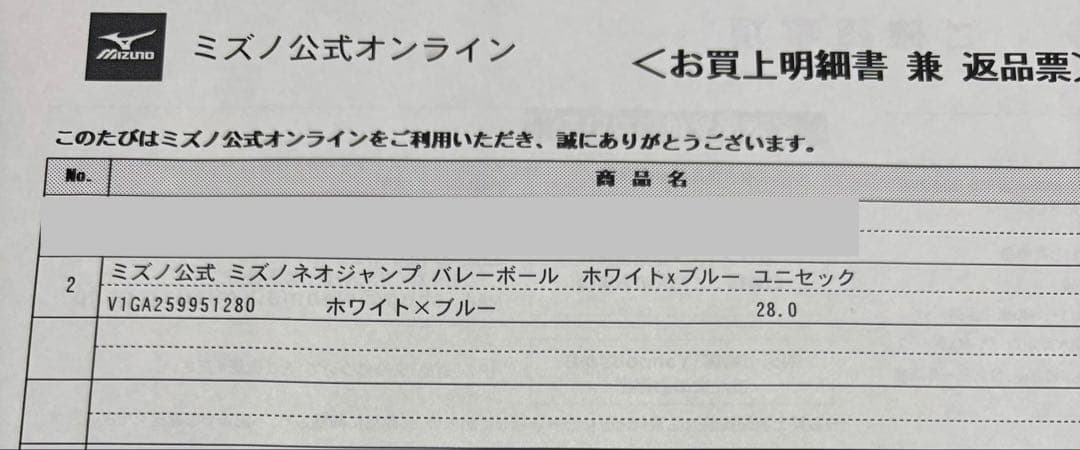 MIZUNO
ミズノ公式オンライン
＜お買上明細書 兼 返品票＞
このたびはミズノ公式オンラインをご利用いただき、誠にありがとうございます。
No. 商 品 名
2 ミズノ公式 ミズノネオジャンプ バレーボール　ホワイトxブルー ユニセック
V1GA259951280 ホワイト×ブルー 28.0